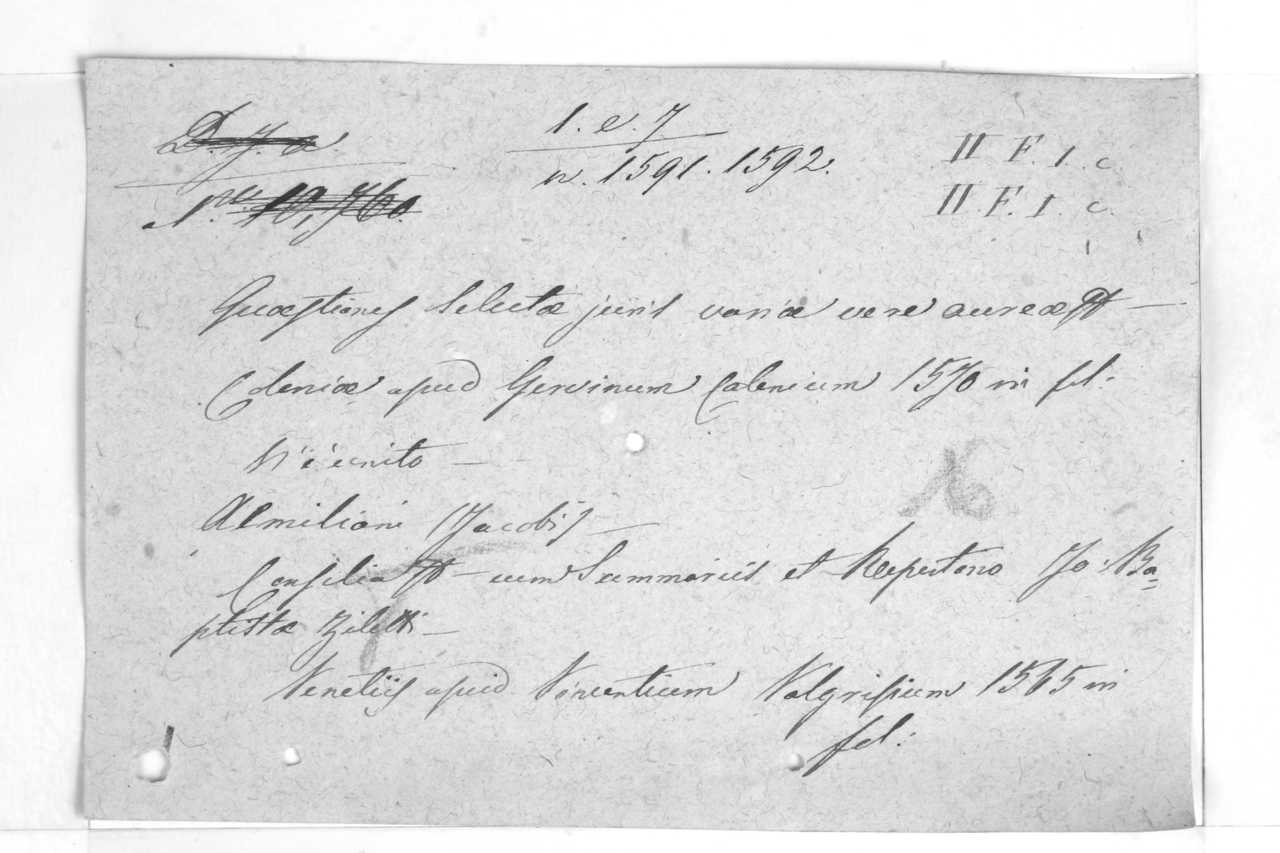 D. J. a 1. e. 7 II F. 1. c.
Nro. 10,760. n. 1591. 1592. II. F. 1. c.
Quæstiones Selectæ juris variæ vere aureæ —
Coloniæ apud Gervinum Calenium 1570 in fol:
V'è unito —
Aemiliani (Jacobi) —
Consilia — cum Summariis et Repertorio Jo: Ba=
ptistæ Ziletti —
Venetiis apud Vincentium Valgrisium 1565 in
fol: